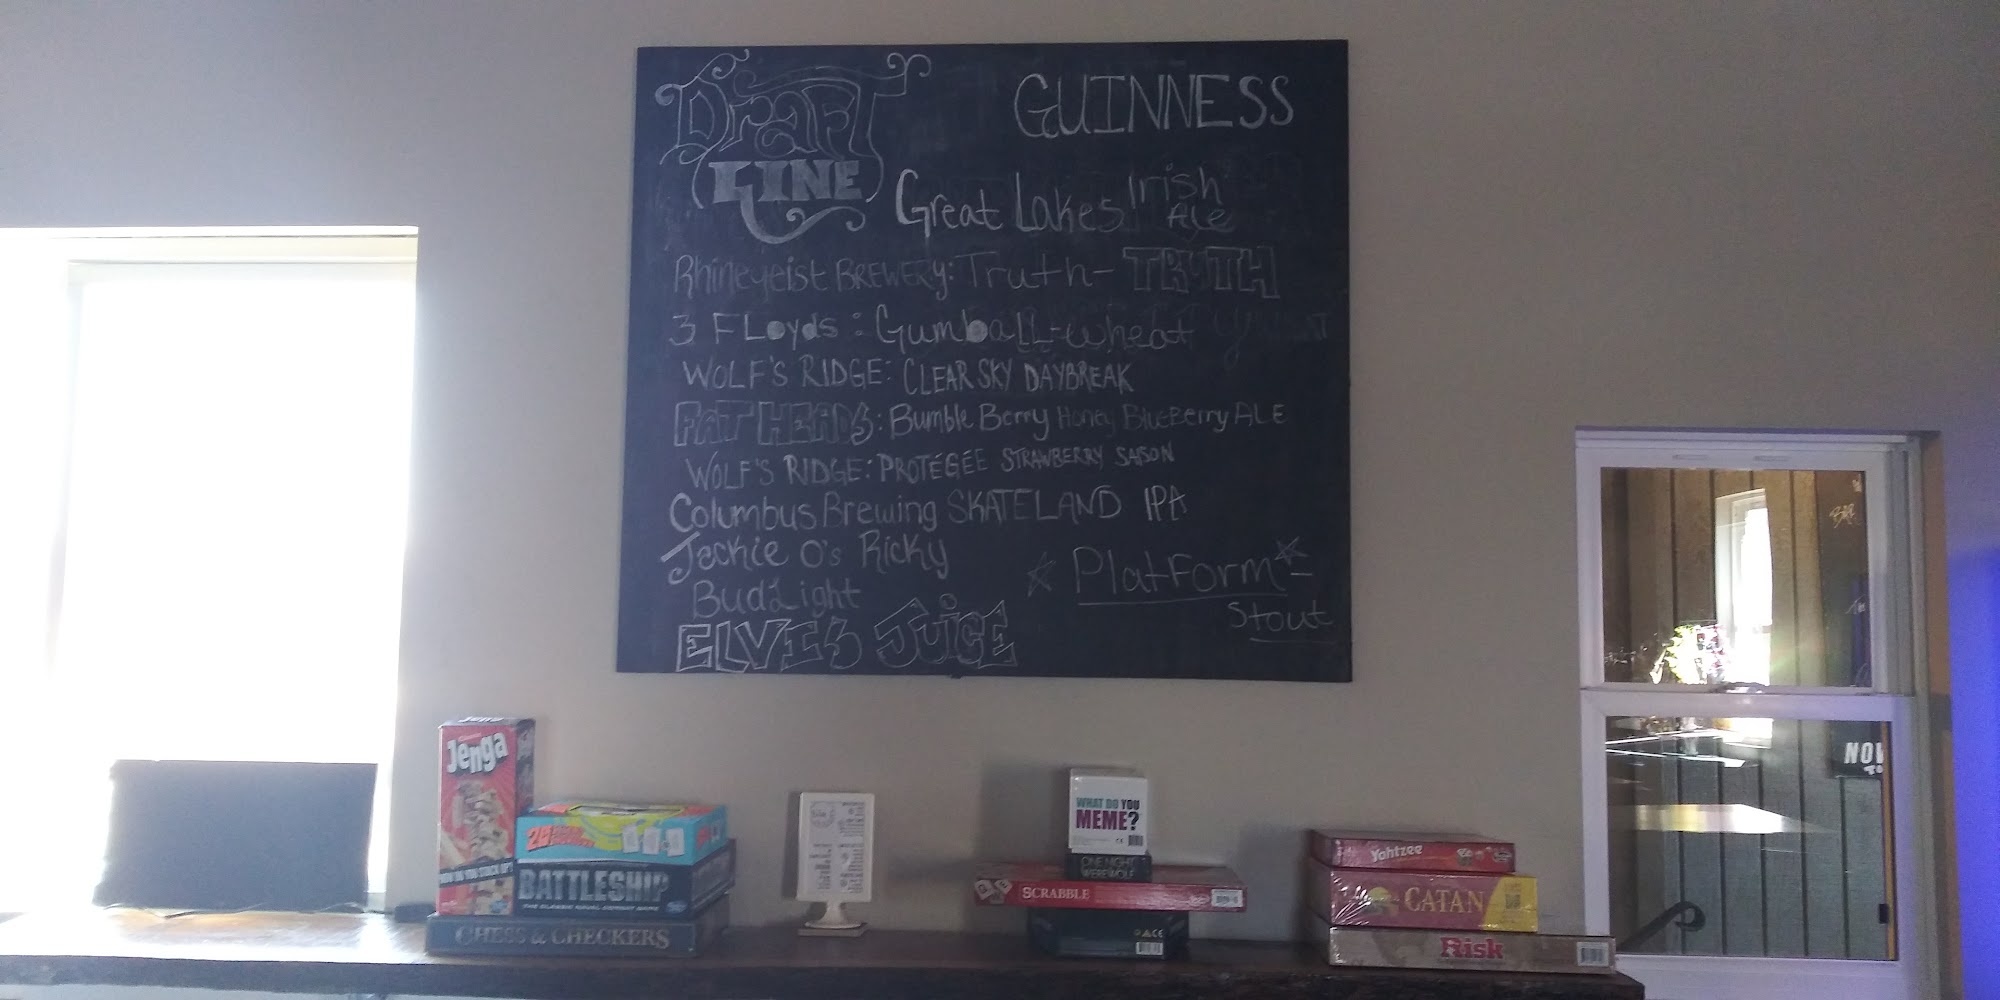 Draft
LINE
GUINNESS
Great Lakes Irish Ale
Rhinegeist BREWERY: Truth - TRUTH
3 FLoyds: GumbaLL-wheat
WOLF'S RIDGE: CLEAR SKY DAYBREAK
FAT HEADS: Bumble Berry Honey BlueBerry ALE
WOLF'S RIDGE: PROTÉGÉE STRAWBERRY SAISON
Columbus Brewing SKATELAND IPA
Jackie O's Ricky
Bud Light
ELVIS JUICE
PlatForm -
Stout
Jenga
BATTLESHIP
CHESS & CHECKERS
WHAT DO YOU
MEME?
ONE NIGHT
WEREWOLF
SCRABBLE
Yahtzee
CATAN
Risk
NOW